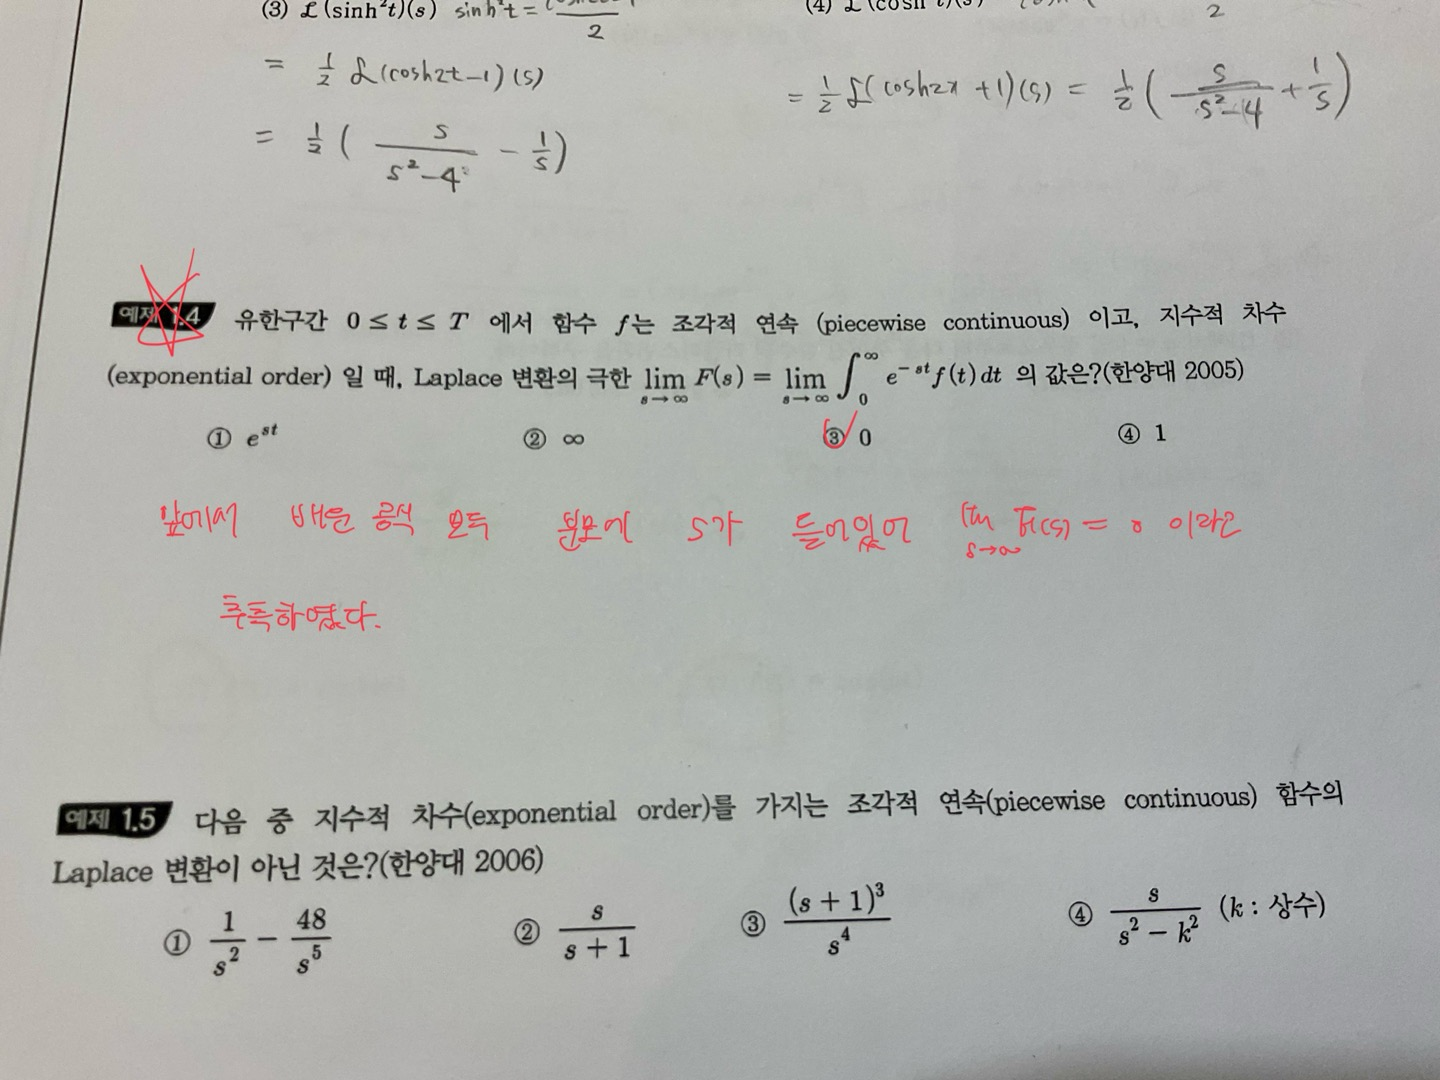 (3) ℒ(sinh²t)(s) sinh²t = 2
= ½ ℒ(cosh2t-1)(s)
= ½ ( s/(s²-4) - 1/s )
(4) 2
= ½ ℒ(cosh2x +1)(s) = ½ ( s/(s²-4) + 1/s )
예제 1.4 유한구간 0 ≤ t ≤ T 에서 함수 f는 조각적 연속 (piecewise continuous) 이고, 지수적 차수
(exponential order) 일 때, Laplace 변환의 극한 lim_{s→∞} F(s) = lim_{s→∞} ∫_0^∞ e^{-st} f(t) dt 의 값은?(한양대 2005)
① e^{st} ② ∞ ③ 0 ④ 1
앞에서 배운 공식 모두 분모에 s가 들어있어 lim_{s→∞} F(s) = 0 이라고
추측하였다.
예제 1.5 다음 중 지수적 차수(exponential order)를 가지는 조각적 연속(piecewise continuous) 함수의
Laplace 변환이 아닌 것은?(한양대 2006)
① 1/s² - 48/s⁵ ② s/(s+1) ③ (s+1)³/s⁴ ④ s/(s²-k²) (k : 상수)